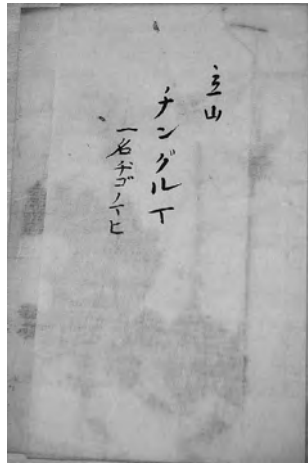 立山
チングルマ
一名チゴノマヒ